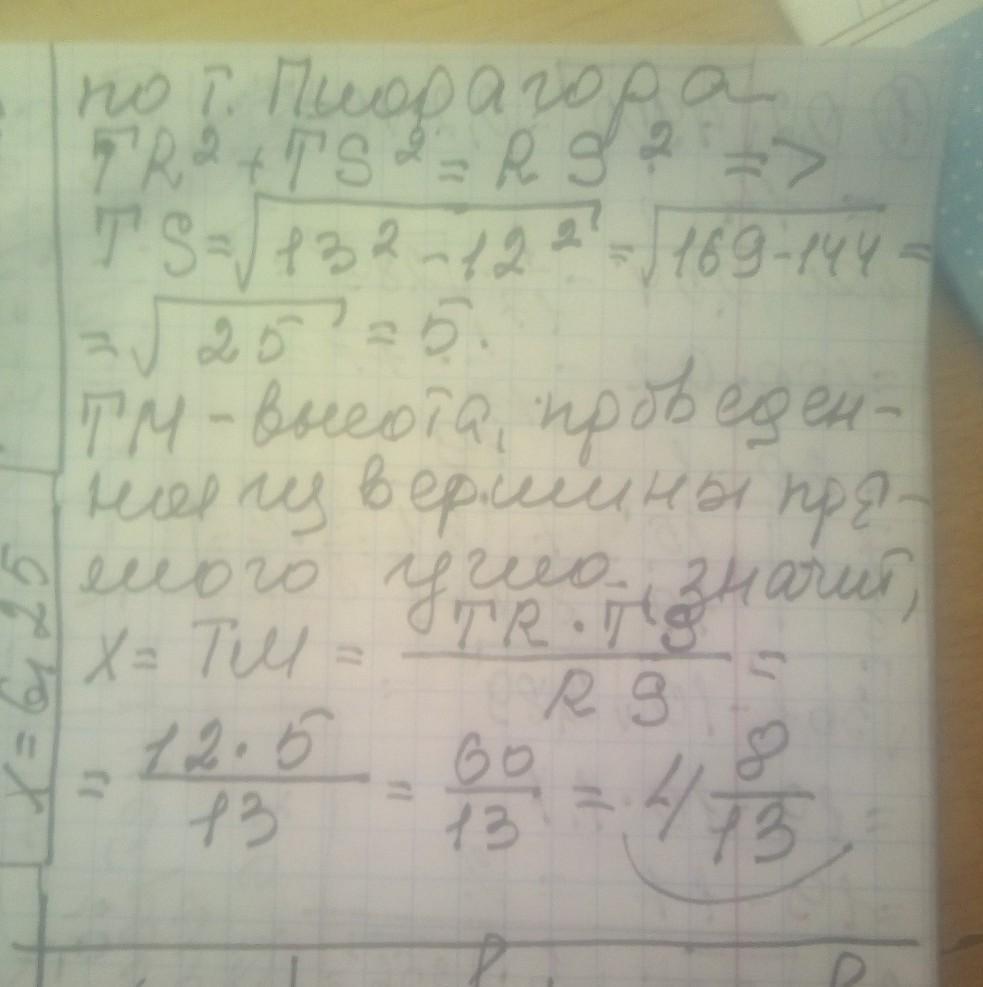 по т. Пифагора
TR² + TS² = RS² =>
TS = √13² - 12² = √169 - 144 =
= √25 = 5.
TM - высота, проведен-
ная из вершины пря-
мого угла, значит,
x = TM = TR · TS / RS =
= 12 · 5 / 13 = 60 / 13 = 4 8/13 =
x = 6,25